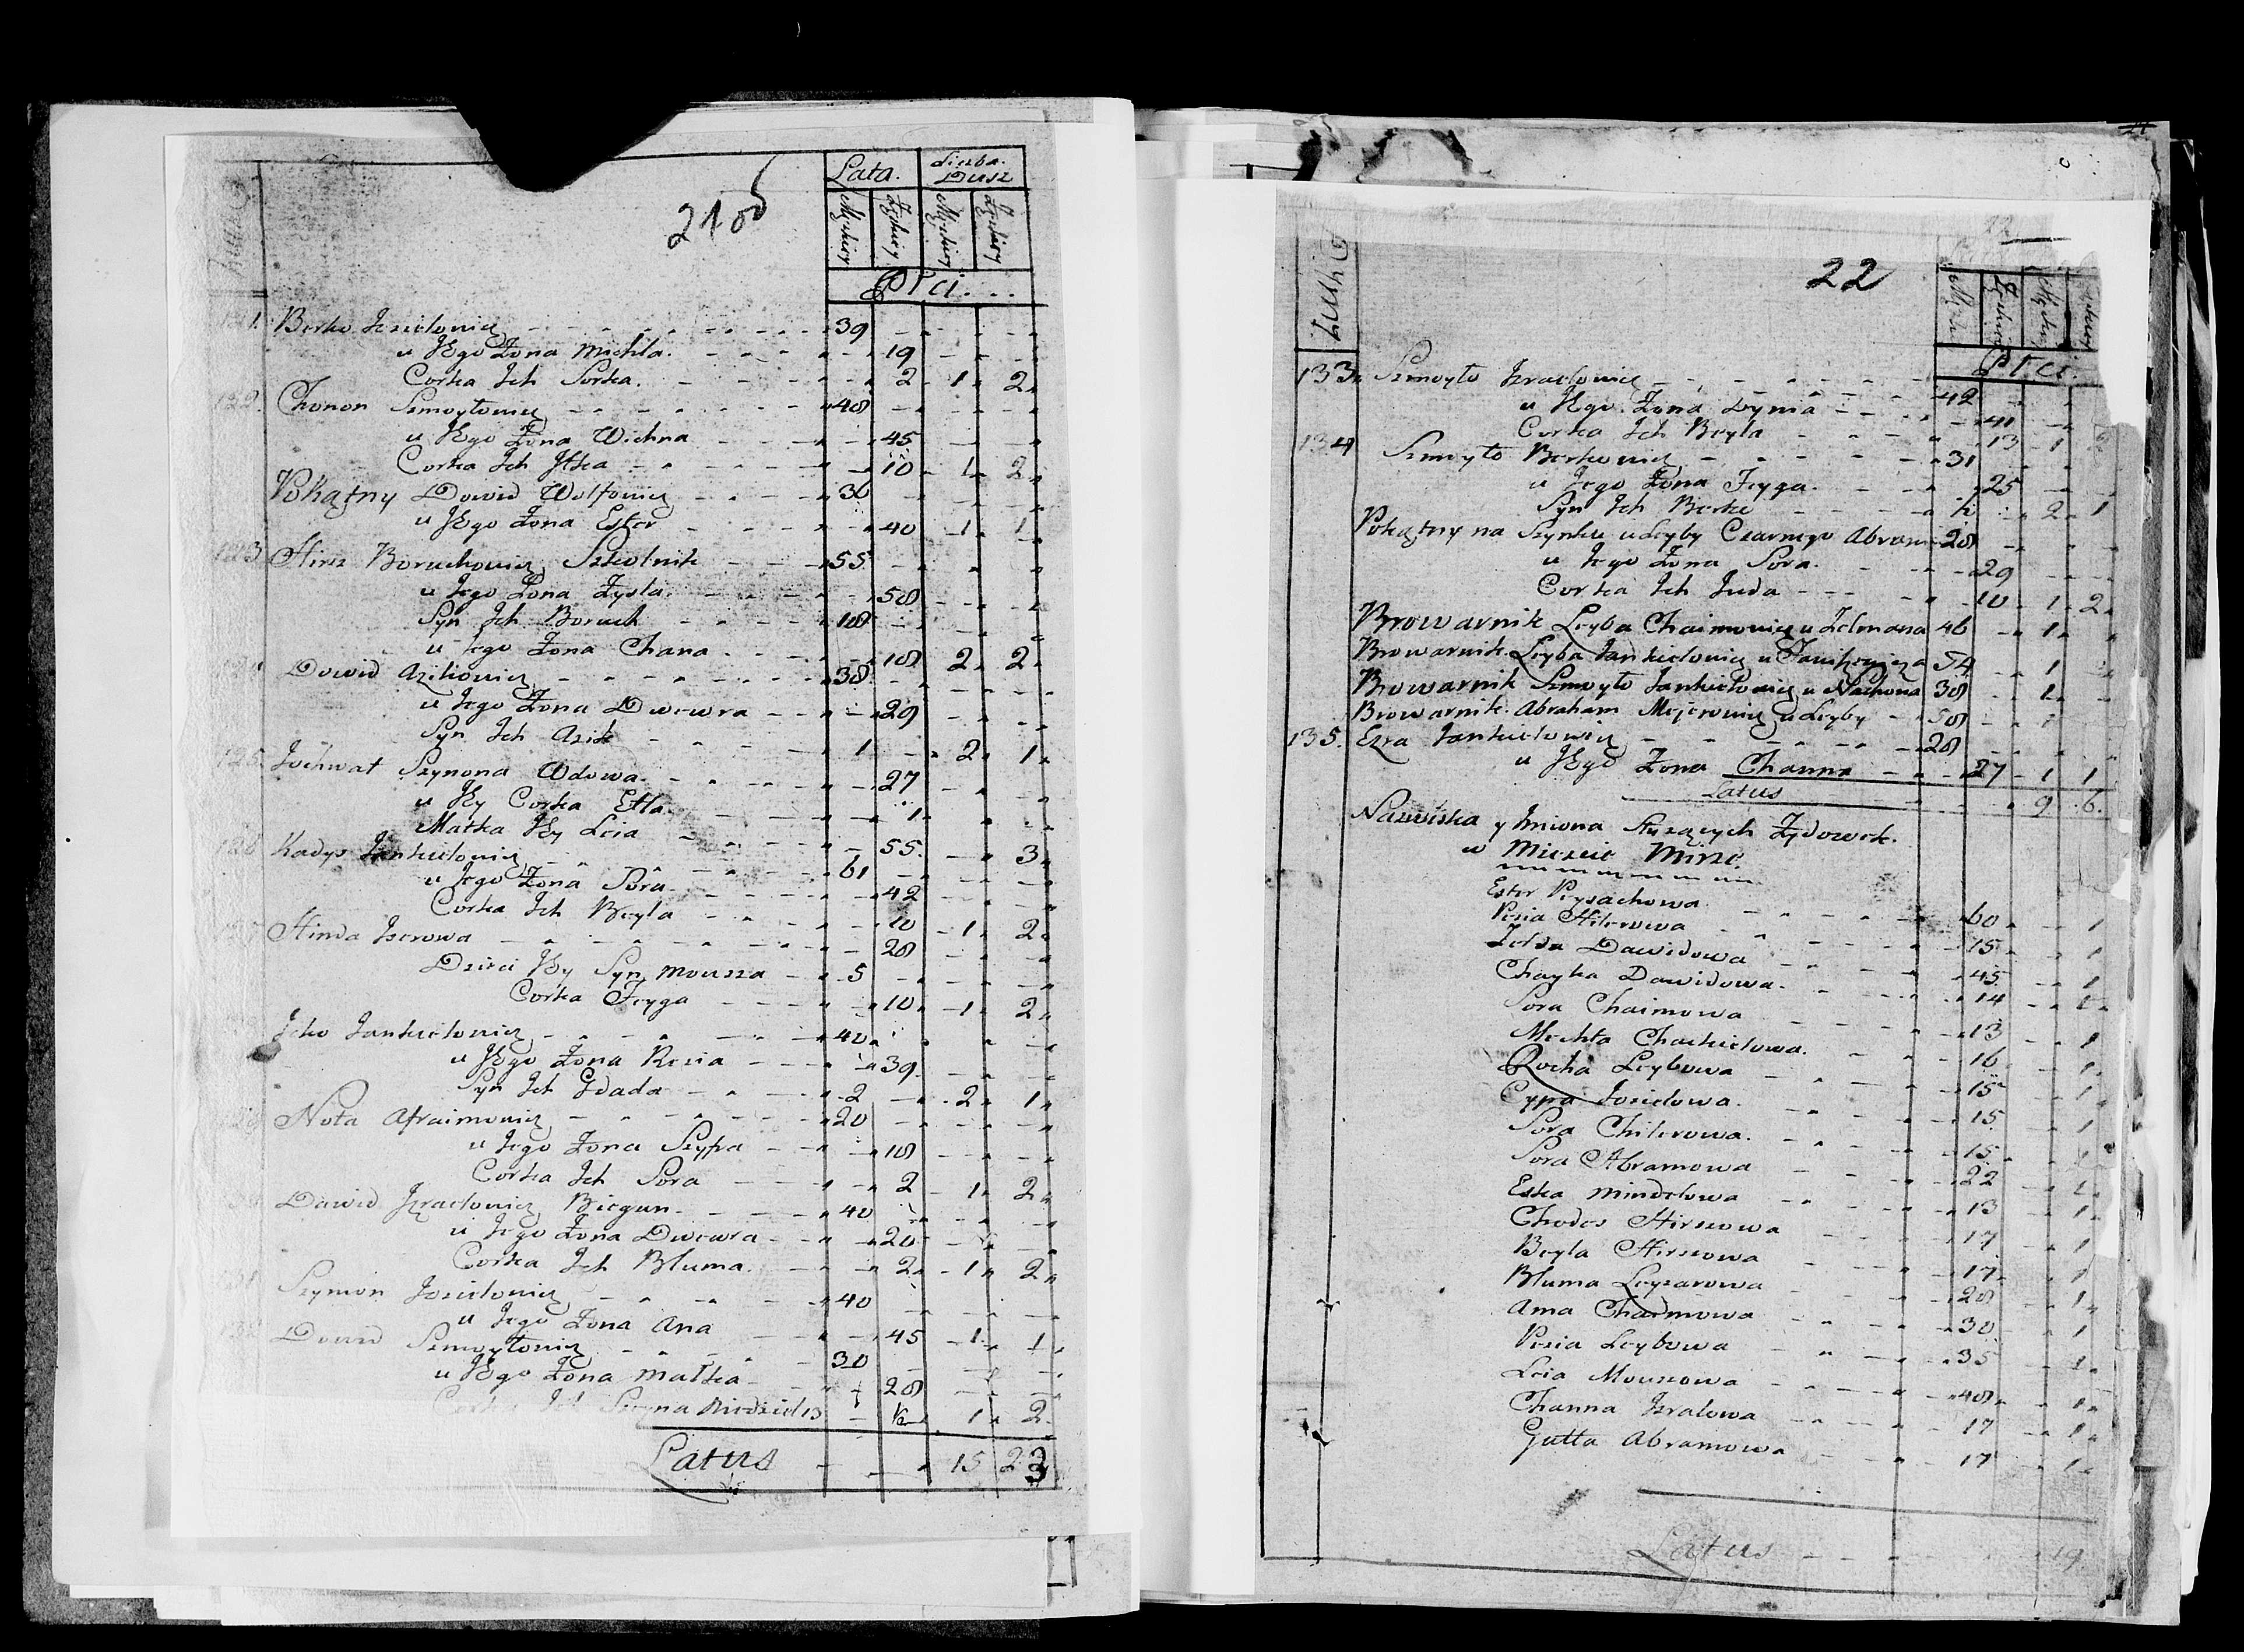 21 об
Lata. Liczba Dusz
Męskiey Żeńskiey Męskiey Żeńskiey
Płci...
Berko Jozielowicz 39
u Jego Żona Michla. 19
Corka Ich Sorka. 2 1 2
122. Chonon Szmoyłowicz 48
u Jego Żona Wichna 45
Corka Ich Itka 10 1 2
Pokątny Dowid Wolfowicz 36
u Jego Żona Ester 40 1 1
123 Hirsz Boruchowicz Szkolnik 55
u Jego Żona Zysla. 58
Syn Ich Boruch 18
u Jego Żona Chana 18 2 2
Dowid Azikowicz 38
u Jego Żona Dwewra 29
Syn Ich Azik 1 2 1
125. Jochwat Szymona Wdowa. 27
u Jey Corka Etla. 1
Matka Jey Leia 55 3
Kadys Jankielowicz 61
u Jego Żona Sora 42
Corka Ich Beyla 10 1 2
Hinda Iserowa 28
Dzieci Jey Syn Mowsza 5
Corka Feyga 10 1 2
Icko Jankielowicz 40
u Jego Żona Resia 39
Syn Ich Gdada 2 2 1
Nota Afraimowicz 20
u Jego Żona Szyfra 18
Corka Ich Sora 2 1 2
Dawid Izraelowicz Biegun. 40
u Jego Żona Dwewra 20
Corka Ich Bluma. 2 1 2
Szymon Jozielowicz 40
u Jego Żona Ana 45 1 1
Dowid Szmoyłowicz 30
u Jego Żona Matka 28
Corka Ich 1 2
Latus 15 23
22
Płci.
133. Szmoyło Izraelowicz 42
u Jego Żona Dynia 41
Corka Ich Beyla 13 1 2
134 Szmoyło Berkowicz 31
u Jego Żona Feyga. 25
Syn Ich Berko 2 1
Pokątny na Szynku u Leyby Czarnego Abram 28
u Jego Żona Sora. 29
Corka Ich Juda 10 1 2
Browarnik Leyba Chaimowicz u Zelmana 46 1
Browarnik Leyba Jankielowicz u 54 1
Browarnik Szmoyło Jankielowicz u Nachona 38 1
Browarnik Abraham Mejerowicz u Leyby 58 1
135. Ezra Jankielowicz 28
u Jego Żona Channa 27 1 1
Latus 9 6.
Nazwiska y Imiona Służących Żydowek.
w Mieście Mirze
Ester Peysachowa 60 1
Pesia Hilerowa 15 1
Zelda Dawidowa 45 1
Chayka Dawidowa. 14 1
Sora Chaimowa 13 1
Mechla Chackielowa. 16 1
Rocha Leybowa 15 1
Cypa Josielowa. 15 1
Sora Chilerowa. 15 1
Sora Abramowa 22 1
Eska Mindelowa 13 1
Chodes Hirszowa 17 1
Beyla Hirszowa 17 1
Bluma Leyzarowa 28 1
Ama Chaimowa 30 1
Pesia Leybowa 35 1
Leia Mowszowa 48 1
Channa Izralowa 17 1
Gutta Abramowa 17 1
Latus 19